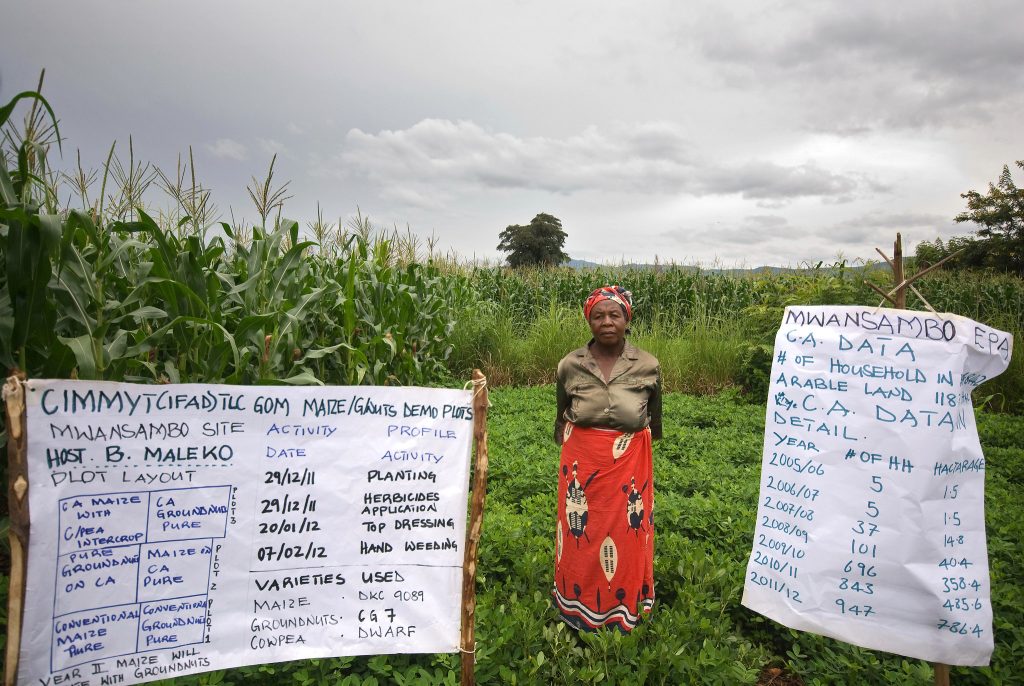 CIMMYT(IFAD)TLC GOM MAIZE/GNUTS DEMO PLOTS
MWANSAMBO SITE
HOST. B. MALEKO
PLOT LAYOUT
CA MAIZE WITH C/PEA INTERCROP
CA GROUNDNUB PURE
PLOT 3
PURE GROUNDNUB ON CA
MAIZE ON CA PURE
PLOT 2
CONVENTIONAL MAIZE PURE
CONVENTIONAL GROUNDNUB PURE
PLOT 1
YEAR II MAIZE WILL
WITH GROUNDNUTS
ACTIVITY PROFILE
DATE ACTIVITY
29/12/11 PLANTING
29/12/11 HERBICIDES APPLICATION
20/01/12 TOP DRESSING
07/02/12 HAND WEEDING
VARIETIES USED
MAIZE : DKC 9089
GROUNDNUTS : CG 7
COWPEA : DWARF
MWANSAMBO EPA
C.A. DATA
# OF HOUSEHOLD IN
ARABLE LAND 118
C.A. DATA IN
DETAIL.
YEAR # OF HH HACTARAGE
2005/06 5 1.5
2006/07 5 1.5
2007/08 37 14.8
2008/09 101 40.4
2009/10 696 358.4
2010/11 843 485.6
2011/12 947 786.4